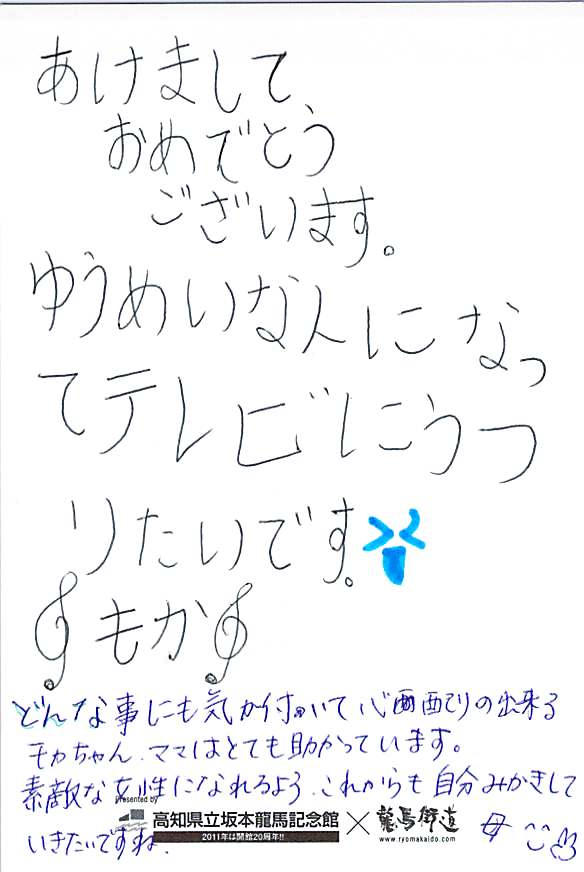 あけまして
おめでとう
ございます。
ゆうめいな人になっ
てテレビにうつ
りたいです。
もか
どんな事にも気が付いて心配りの出来る
モカちゃん、ママはとても助かっています。
素敵な女性になれるよう、これからも自分みがきして
いきたいですね。
母
Presented by
高知県立坂本龍馬記念館 × 龍馬街道
2011年は開館20周年!! www.ryomakaido.com